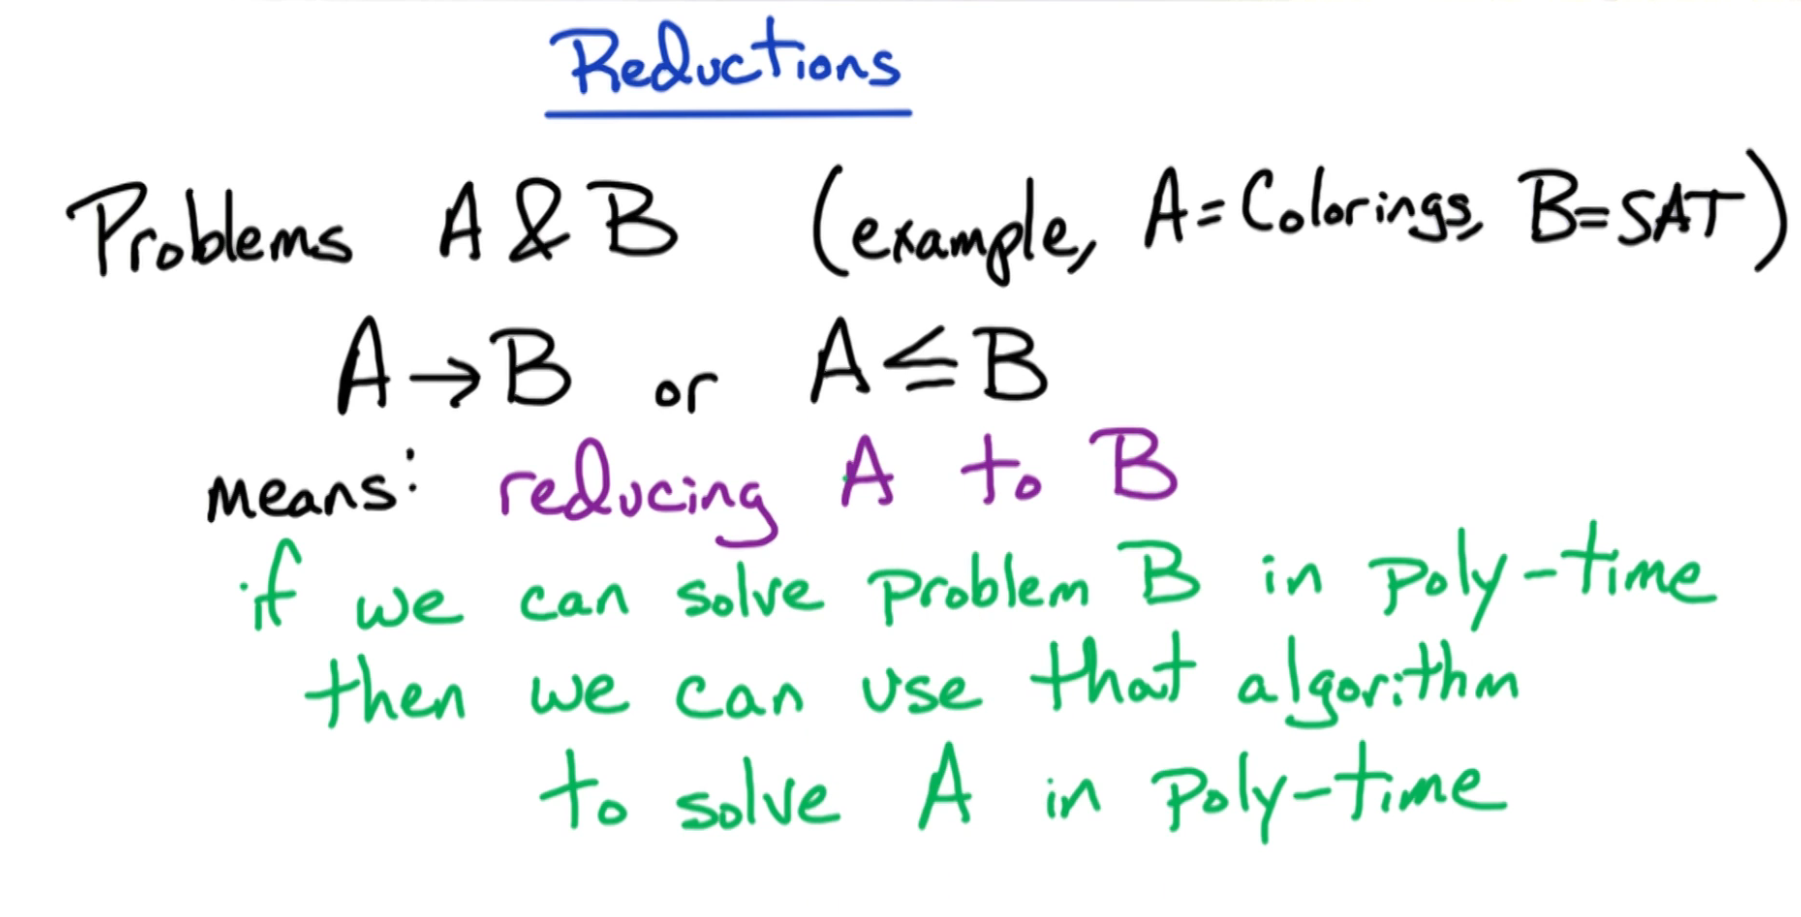 Reductions
Problems A & B (example, A=Colorings, B=SAT)
A→B or A≤B
means: reducing A to B
if we can solve problem B in poly-time
then we can use that algorithm
to solve A in poly-time